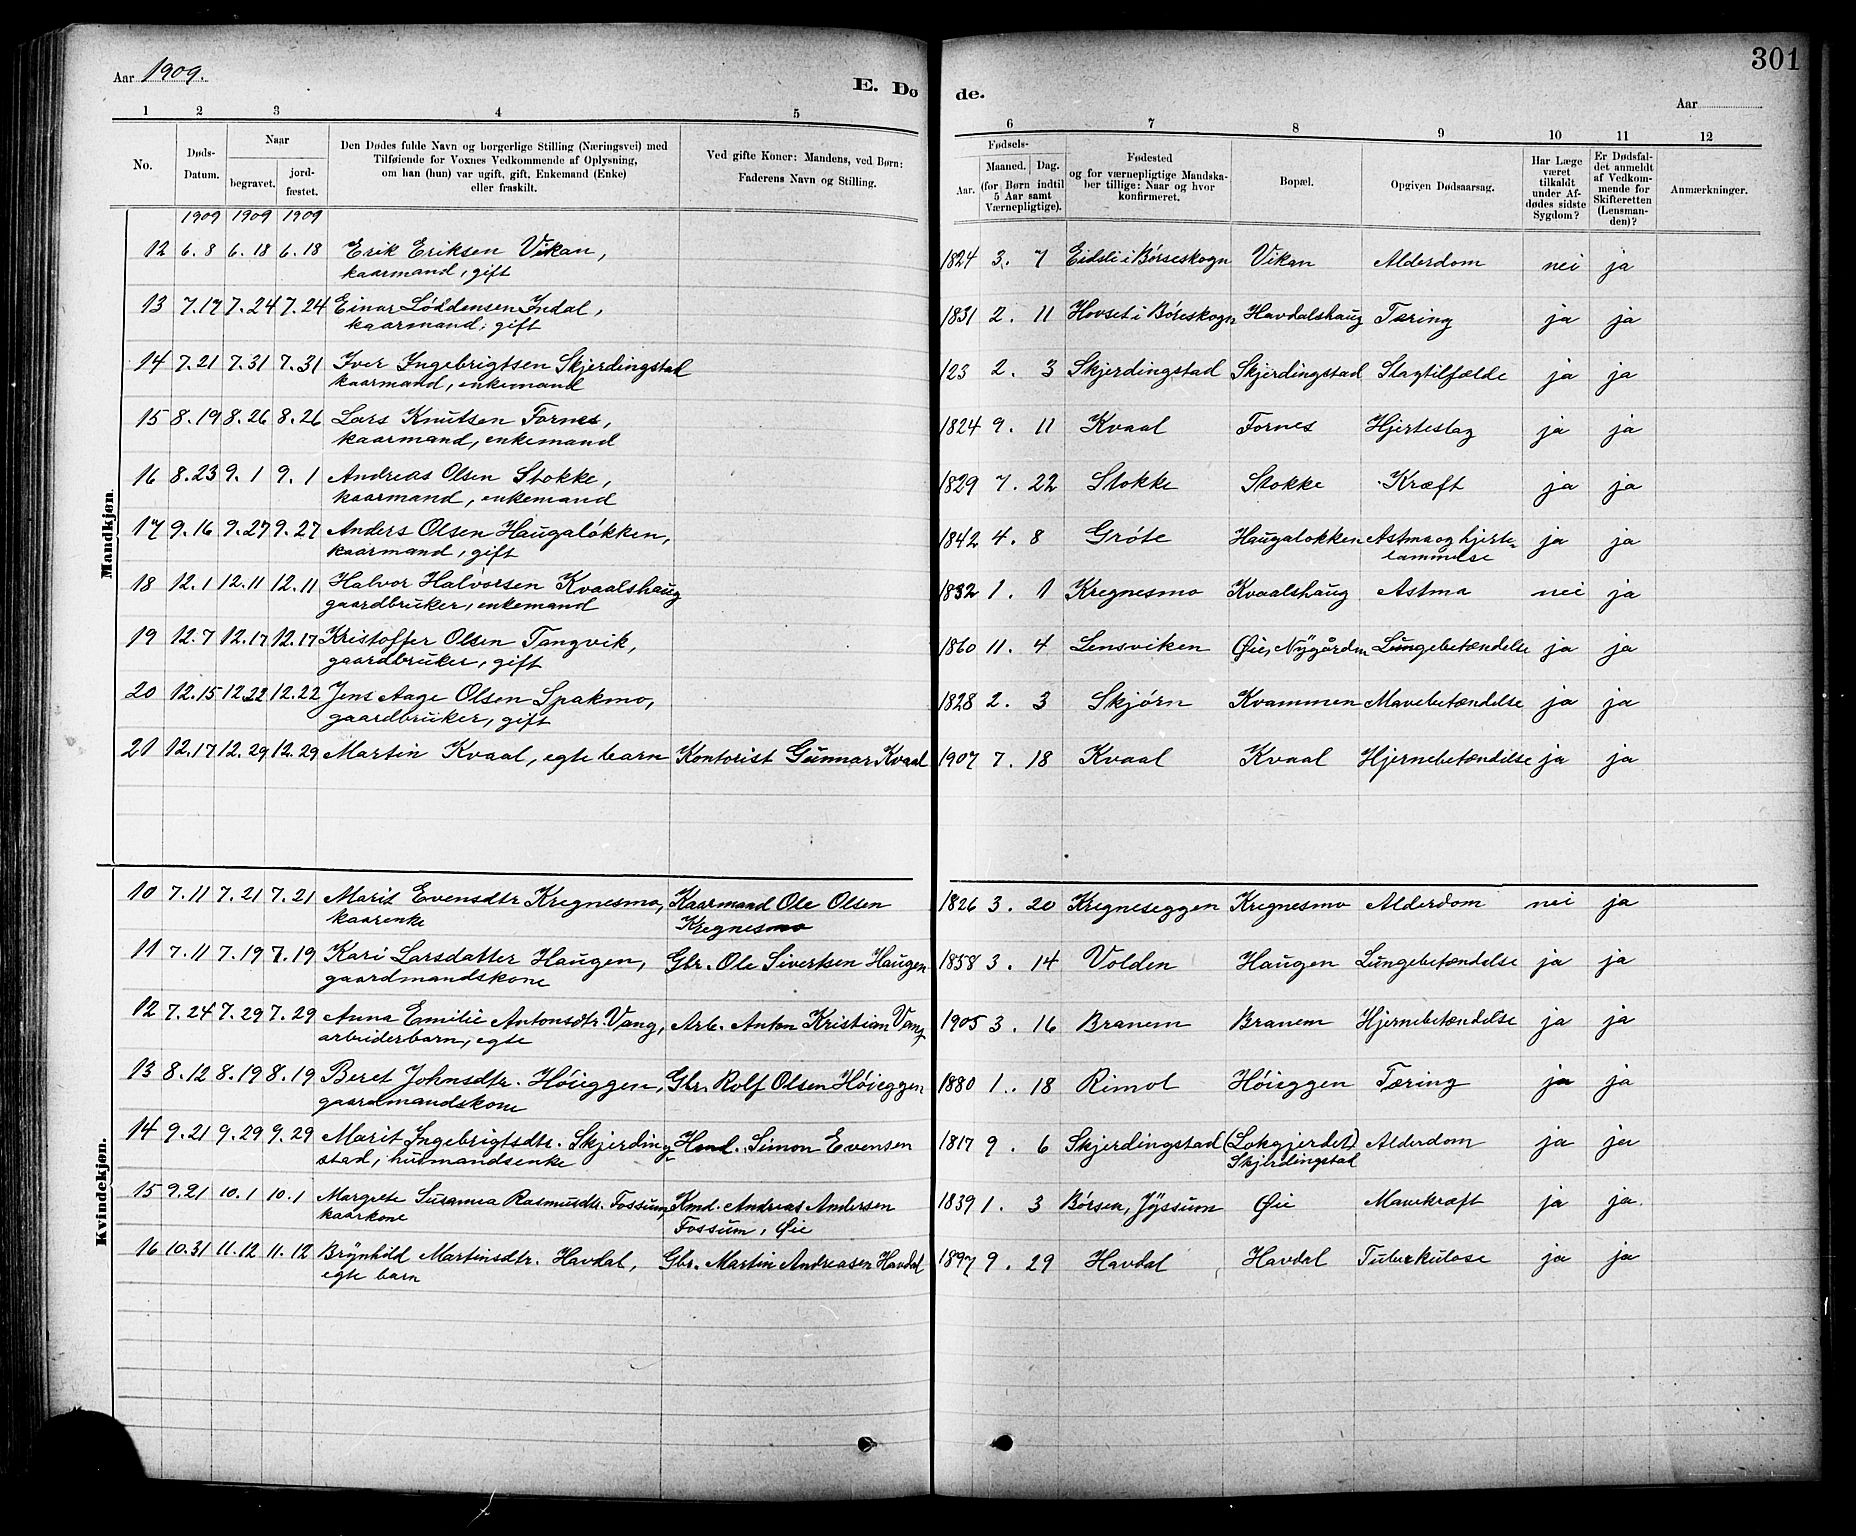 301
Aar 1909.
E. Dø de.
Aar
1 2 3 4 5 6 7 8 9 10 11 12
No.
Døds-Datum.
Naar
begravet.
jord-fæstet.
Den Dødes fulde Navn og borgerlige Stilling (Næringsvei) med
Tilføiende for Voxnes Vedkommende af Oplysning,
om han (hun) var ugift, gift, Enkemand (Enke)
eller fraskilt.
Ved gifte Koner: Mandens, ved Børn:
Faderens Navn og Stilling.
Fødsels-
Aar.
Maaned. Dag.
(for Børn indtil
5 Aar samt
Værnepligtige).
Fødested
og for værnepligtige Mandska-
ber tillige: Naar og hvor
konfirmeret.
Bopæl.
Opgiven Dødsaarsag.
Har Læge
været
tilkaldt
under Af-
dødes sidste
Sygdom?
Er Dødsfal-
det anmeldt
af Vedkom-
mende for
Skifteretten
(Lensman-
den)?
Anmærkninger.
Mandkjøn.
1909 1909 1909
12 6.8 6.18 6.18 Erik Eriksen Vikan, 1824 3. 7 Eidsli i Børseskogn Vikan Alderdom nei ja
kaarmand, gift
13 7.17 7.24 7.24 Einar Løddensen Indal, 1831 2. 11 Hovset i Børeskogn Havdalshaug Tæring ja ja
kaarmand, gift
14 7.21 7.31 7.31 Iver Ingebrigtsen Skjerdingstad 123 2. 3 Skjerdingstad Skjerdingstad Slagtilfælde ja ja
kaarmand, enkemand
15 8.19 8.26 8.26 Lars Knutsen Fornes, 1824 9. 11 Kvaal Fornes Hjerteslag ja ja
kaarmand, enkemand
16 8.23 9.1 9.1 Andreas Olsen Stokke, 1829 7. 22 Stokke Stokke Kræft ja ja
kaarmand, enkemand
17 9.16 9.27 9.27 Anders Olsen Haugaløkken, 1842 4. 8 Grøte Haugaløkken Astma og hjerte- ja ja
kaarmand, gift lammelse
18 12.1 12.11 12.11 Halvor Halvorsen Kvaalshaug 1832 1. 1 Kregnesmo Kvaalshaug Astma nei ja
gaardbruker, enkemand
19 12.7 12.17 12.17 Kristoffer Olsen Tangvik, 1860 11. 4 Lensviken Øie, Nygården Lungebetændelse ja ja
gaardbruker, gift
20 12.15 12.22 12.22 Jens Aage Olsen Spakmo, 1828 2. 3 Skjørn Kvammen Mavebetændelse ja ja
gaardbruker, gift
21 12.17 12.29 12.29 Martin Kvaal, egte barn Kontorist Gunnar Kvaal 1907 7. 18 Kvaal Kvaal Hjernebetændelse ja ja
Kvindekjøn.
10 7.11 7.21 7.21 Marit Evensdtr Kregnesmo, Kaarmand Ole Olsen 1826 3. 20 Kregneseggen Kregnesmo Alderdom nei ja
kaarenke Kregnesmo
11 7.11 7.19 7.19 Kari Larsdatter Haugen, Gbr. Ole Sivertsen Haugen 1858 3. 14 Volden Haugen Lungebetændelse ja ja
gaardmandskone
12 7.24 7.29 7.29 Anna Emilie Antonsdtr. Vang, Arb. Anton Kristian Vang 1905 3. 16 Branem Branem Hjernebetændelse ja ja
arbeiderbarn, egte
13 8.12 8.19 8.19 Beret Johnsdtr. Høieggen, Gbr. Rolf Olsen Høieggen 1880 1. 18 Rimol Høieggen Tæring ja ja
gaardmandskone
14 9.21 9.29 9.29 Marit Ingebrigtsdtr. Skjerding- Hmd. Simon Evensen 1817 9. 6 Skjerdingstad (Løkgjerdet) Alderdom ja ja
stad, husmandsenke Skjerdingstad
15 9.21 10.1 10.1 Margrete Susanna Rasmusdtr. Fossum, Kmd. Andreas Andersen 1839 1. 3 Børsen, Jyssum Øie Mavekræft ja ja.
kaarkone Fossum, Øie
16 10.31 11.12 11.12 Brynhild Martinsdtr. Havdal, Gbr. Martin Andreasen Havdal 1897 9. 29 Havdal Havdal Tuberkulose ja ja
egte barn